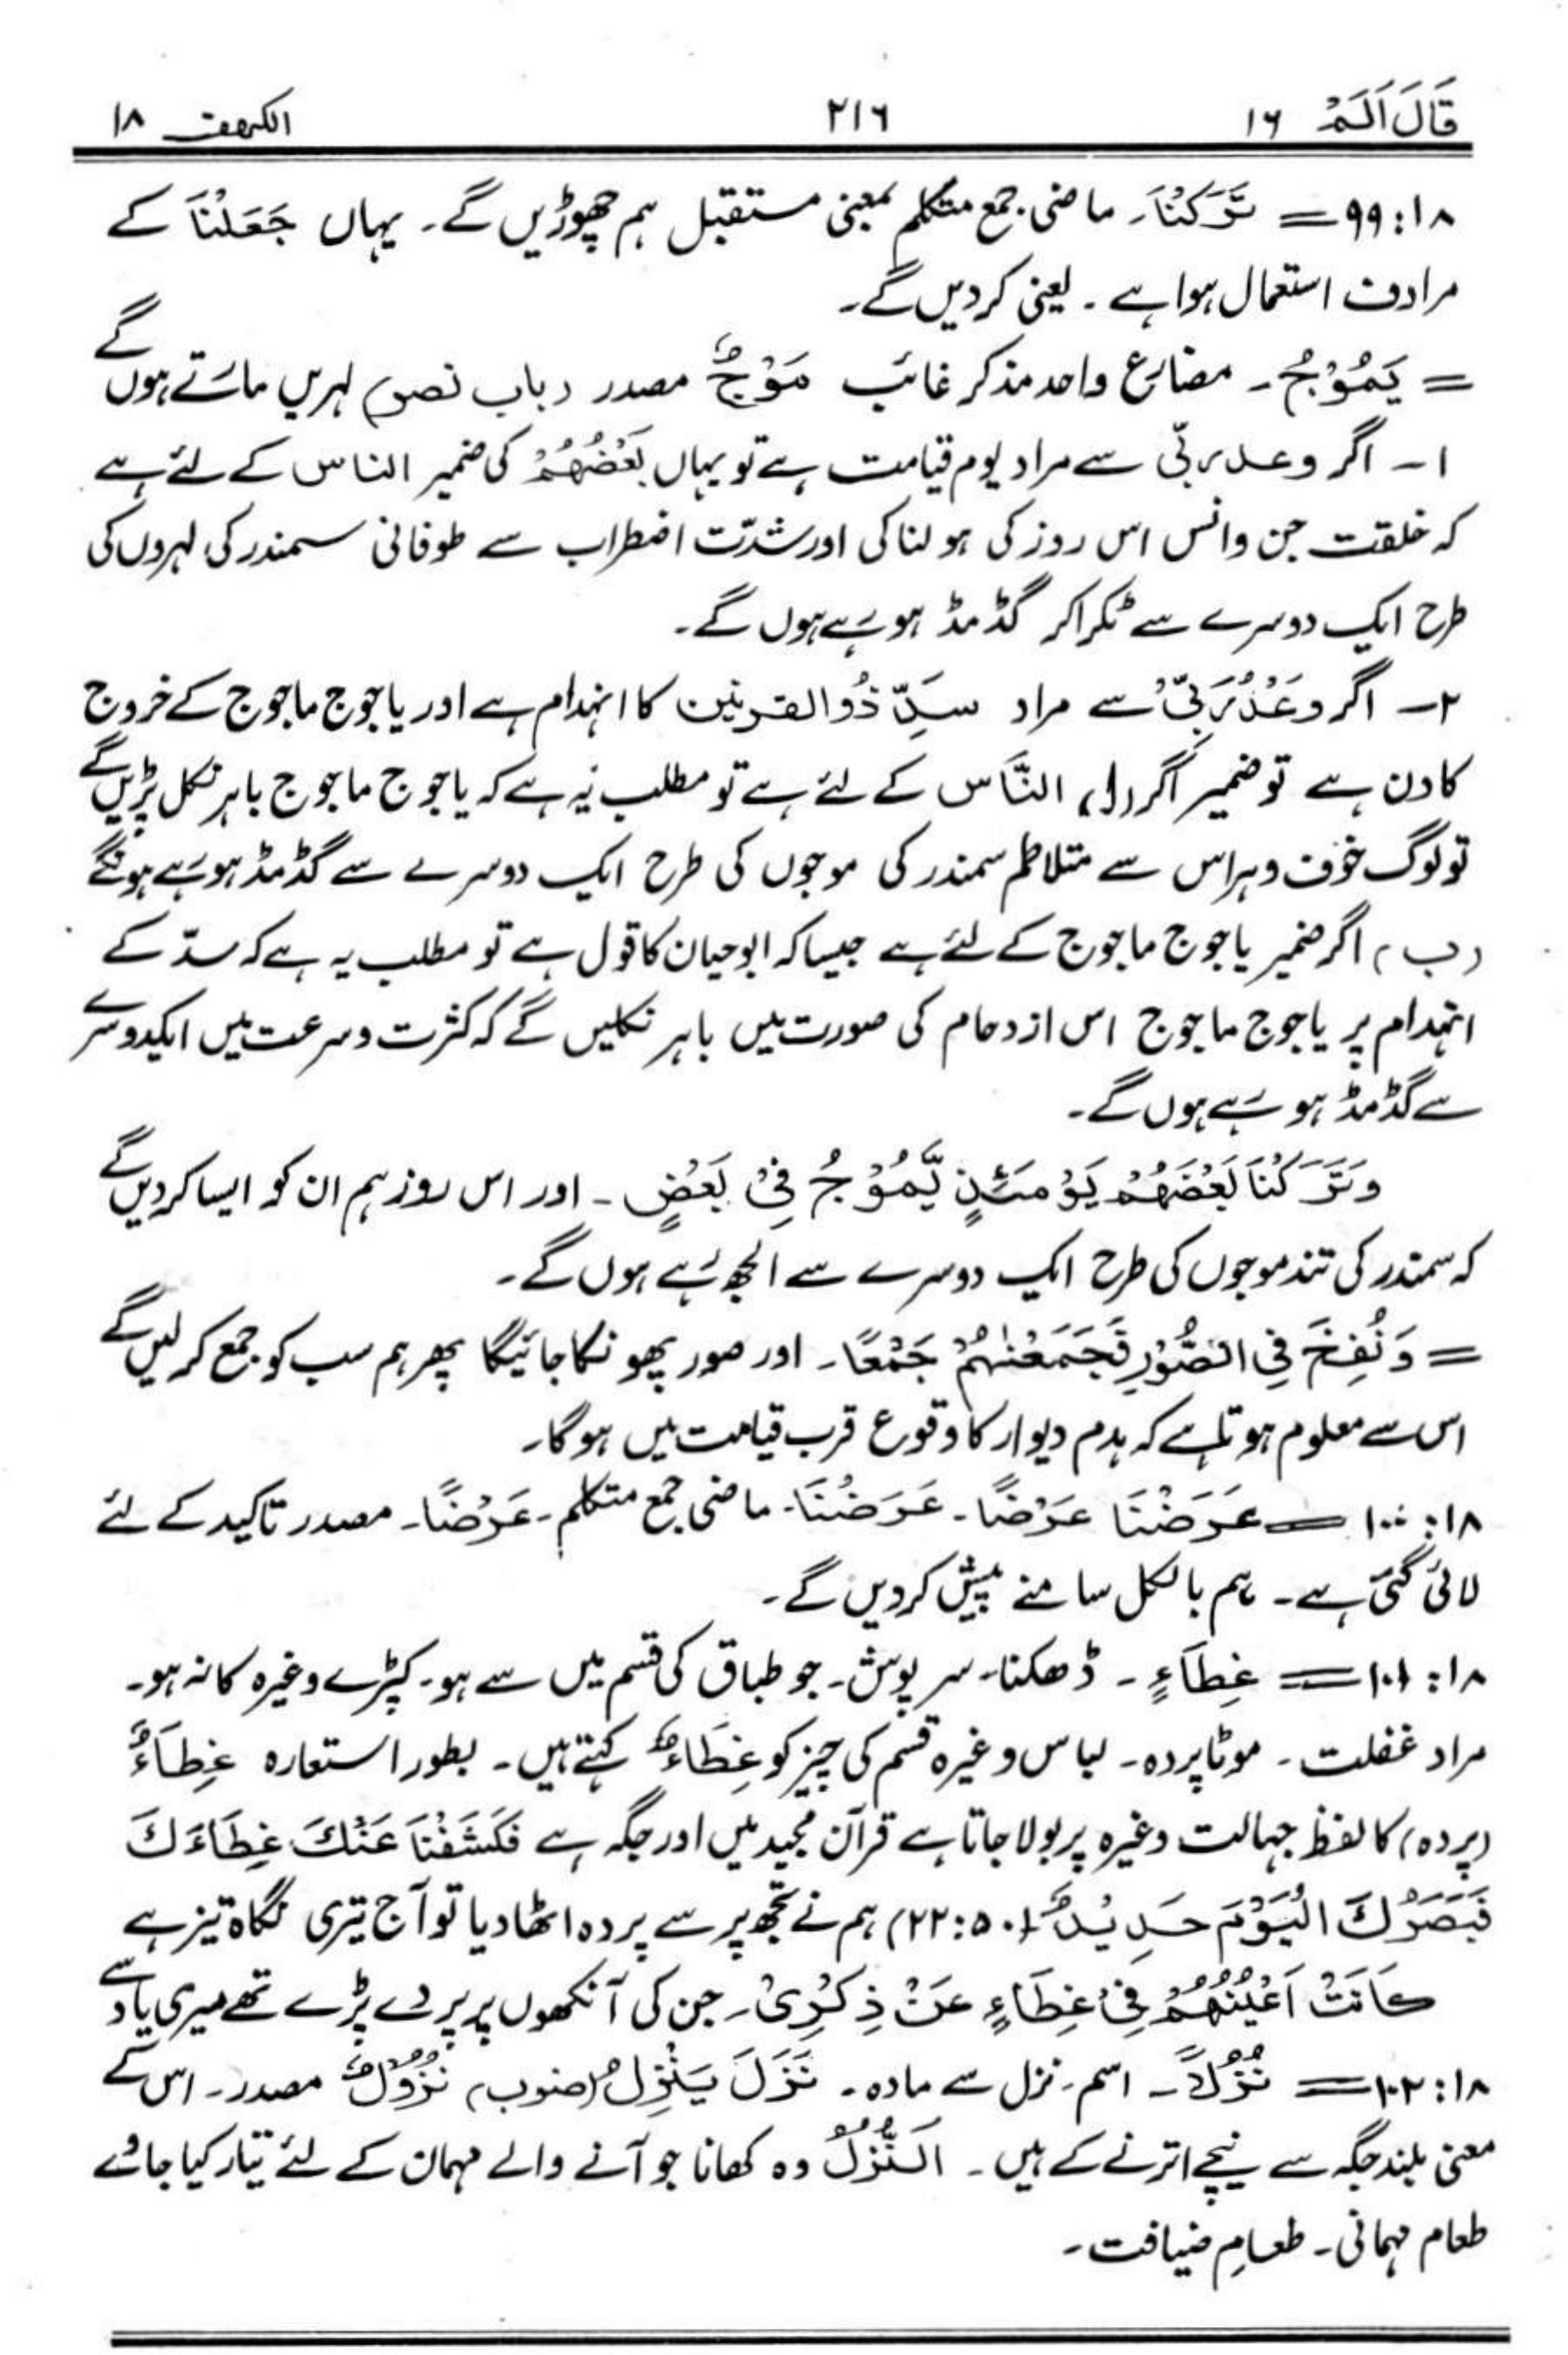 قَالَ اَلَمْ ۱۶ ۲۱۶ الکہف ۱۸
۹۹:۱۸ = تَرَکْنَا۔ ماضی جمع متکلم بمعنی مستقبل ہم چھوڑیں گے۔ یہاں جَعَلْنَا کے
مرادف استعمال ہوا ہے۔ یعنی کر دیں گے۔
= یَمُوْجُ۔ مضارع واحد مذکر غائب مَوْجٌ مصدر (باب نصر) لہریں مارتے ہوں گے
۱۔ اگر وعد ربّی سے مراد یوم قیامت ہے تو یہاں بَعْضُھُمْ کی ضمیر الناس کے لئے ہے
کہ خلقت جن و انس اس روز کی ہولناکی اور شدّت اضطراب سے طوفانی سمندر کی لہروں کی
طرح ایک دوسرے سے ٹکرا کر گڈمڈ ہو رہے ہوں گے۔
۲۔ اگر وَعْدُ رَبِّیْ سے مراد سدِّ ذُوالقرنین کا انہدام ہے اور یاجوج ماجوج کے خروج
کا دن ہے تو ضمیر اگر (ا) النَّاس کے لئے ہے تو مطلب یہ ہے کہ یاجوج ماجوج باہر نکل پڑیں گے
تو لوگ خوف و ہراس سے متلاطم سمندر کی موجوں کی طرح ایک دوسرے سے گڈمڈ ہو رہے ہونگے
(ب) اگر ضمیر یاجوج ماجوج کے لئے ہے جیسا کہ ابو حیان کا قول ہے تو مطلب یہ ہے کہ سدّ کے
انہدام پر یاجوج ماجوج اس ازدحام کی صورت میں باہر نکلیں گے کہ کثرت و سرعت میں ایکدوسرے
سے گڈمڈ ہو رہے ہوں گے۔
وَتَرَکْنَا بَعْضَھُمْ یَوْمَئِذٍ یَّمُوْجُ فِیْ بَعْضٍ۔ اور اس روز ہم ان کو ایسا کر دیں گے
کہ سمندر کی تند موجوں کی طرح ایک دوسرے سے الجھ رہے ہوں گے۔
= وَ نُفِخَ فِی الصُّوْرِ فَجَمَعْنٰھُمْ جَمْعًا۔ اور صور پھونکا جائیگا پھر ہم سب کو جمع کر لیں گے
اس سے معلوم ہوتا ہے کہ ہدم دیوار کا وقوع قرب قیامت میں ہوگا۔
۱۰۰:۱۸ = عَرَضْنَا عَرْضًا۔ عَرَضْنَا۔ ماضی جمع متکلم۔ عَرْضًا۔ مصدر تاکید کے لئے
لائی گئی ہے۔ ہم بالکل سامنے پیش کر دیں گے۔
۱۰۱:۱۸ = غِطَآءٍ۔ ڈھکنا۔ سرپوش۔ جو طباق کی قسم میں سے ہو۔ کپڑے وغیرہ کا نہ ہو۔
مراد غفلت۔ موٹا پردہ۔ لباس وغیرہ قسم کی چیز کو غِطَاءٌ کہتے ہیں۔ بطور استعارہ غِطَآءٌ
(پردہ) کا لفظ جہالت وغیرہ پر بولا جاتا ہے قرآن مجید میں اور جگہ ہے فَکَشَفْنَا عَنْكَ غِطَاءَكَ
فَبَصَرُكَ الْیَوْمَ حَدِیْدٌ (۲۲:۵۰) ہم نے تجھ پر سے پردہ اٹھا دیا تو آج تیری نگاہ تیز ہے
کَانَتْ اَعْیُنُھُمْ فِیْ غِطَاءٍ عَنْ ذِکْرِیْ۔ جن کی آنکھوں پر پردے پڑے تھے میری یاد سے
۱۰۲:۱۸ = نُزُلًا۔ اسم۔ نزل سے مادہ۔ نَزَلَ یَنْزِلُ (ضرب) نُزُوْلٌ مصدر۔ اس کے
معنی بلند جگہ سے نیچے اترنے کے ہیں۔ اَلنُّزُلُ وہ کھانا جو آنے والے مہمان کے لئے تیار کیا جائے
طعام مہمانی۔ طعامِ ضیافت۔